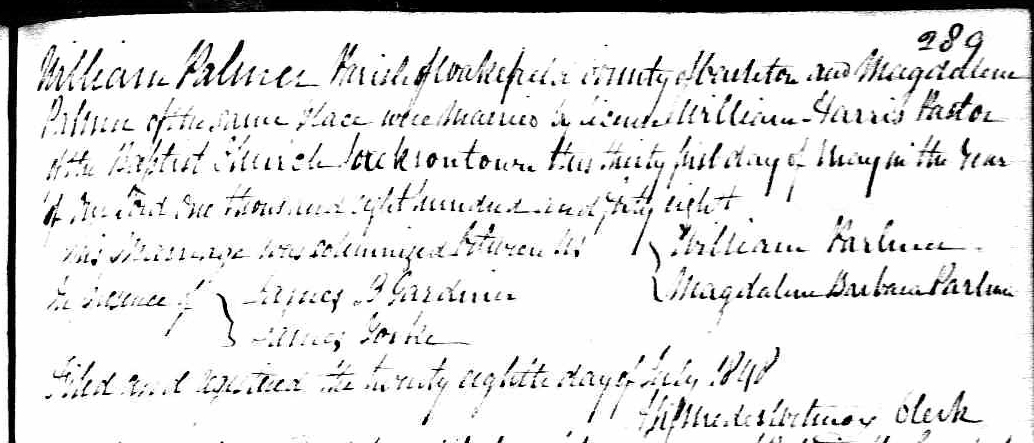 289
William Palmer Parish of Wakefield County of Carleton and Magdalene
Palmer of the same Place were Married by license William Harris Pastor
of the Baptist Church Jacksontown this thirty first day of May in the Year
of our Lord One thousand eight hundred and forty eight
This Marriage was solemnized between us William Parlmer
In presence of James B Gardiner Magdalene Barbara Parlmer
James
Filed and registered the twenty eighth day of July 1848
Clerk